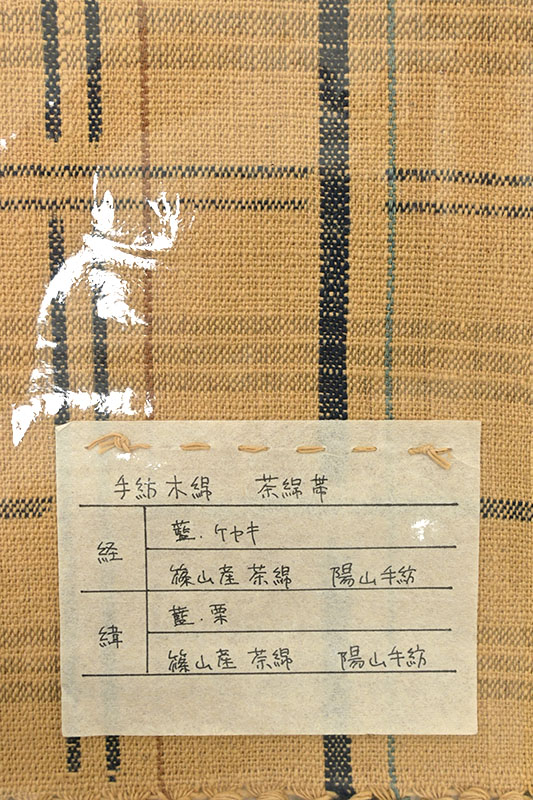 手紡木綿 茶綿帯
経
藍.ケヤキ
篠山産 茶綿 陽山手紡
緯
藍.栗
篠山産 茶綿 陽山手紡